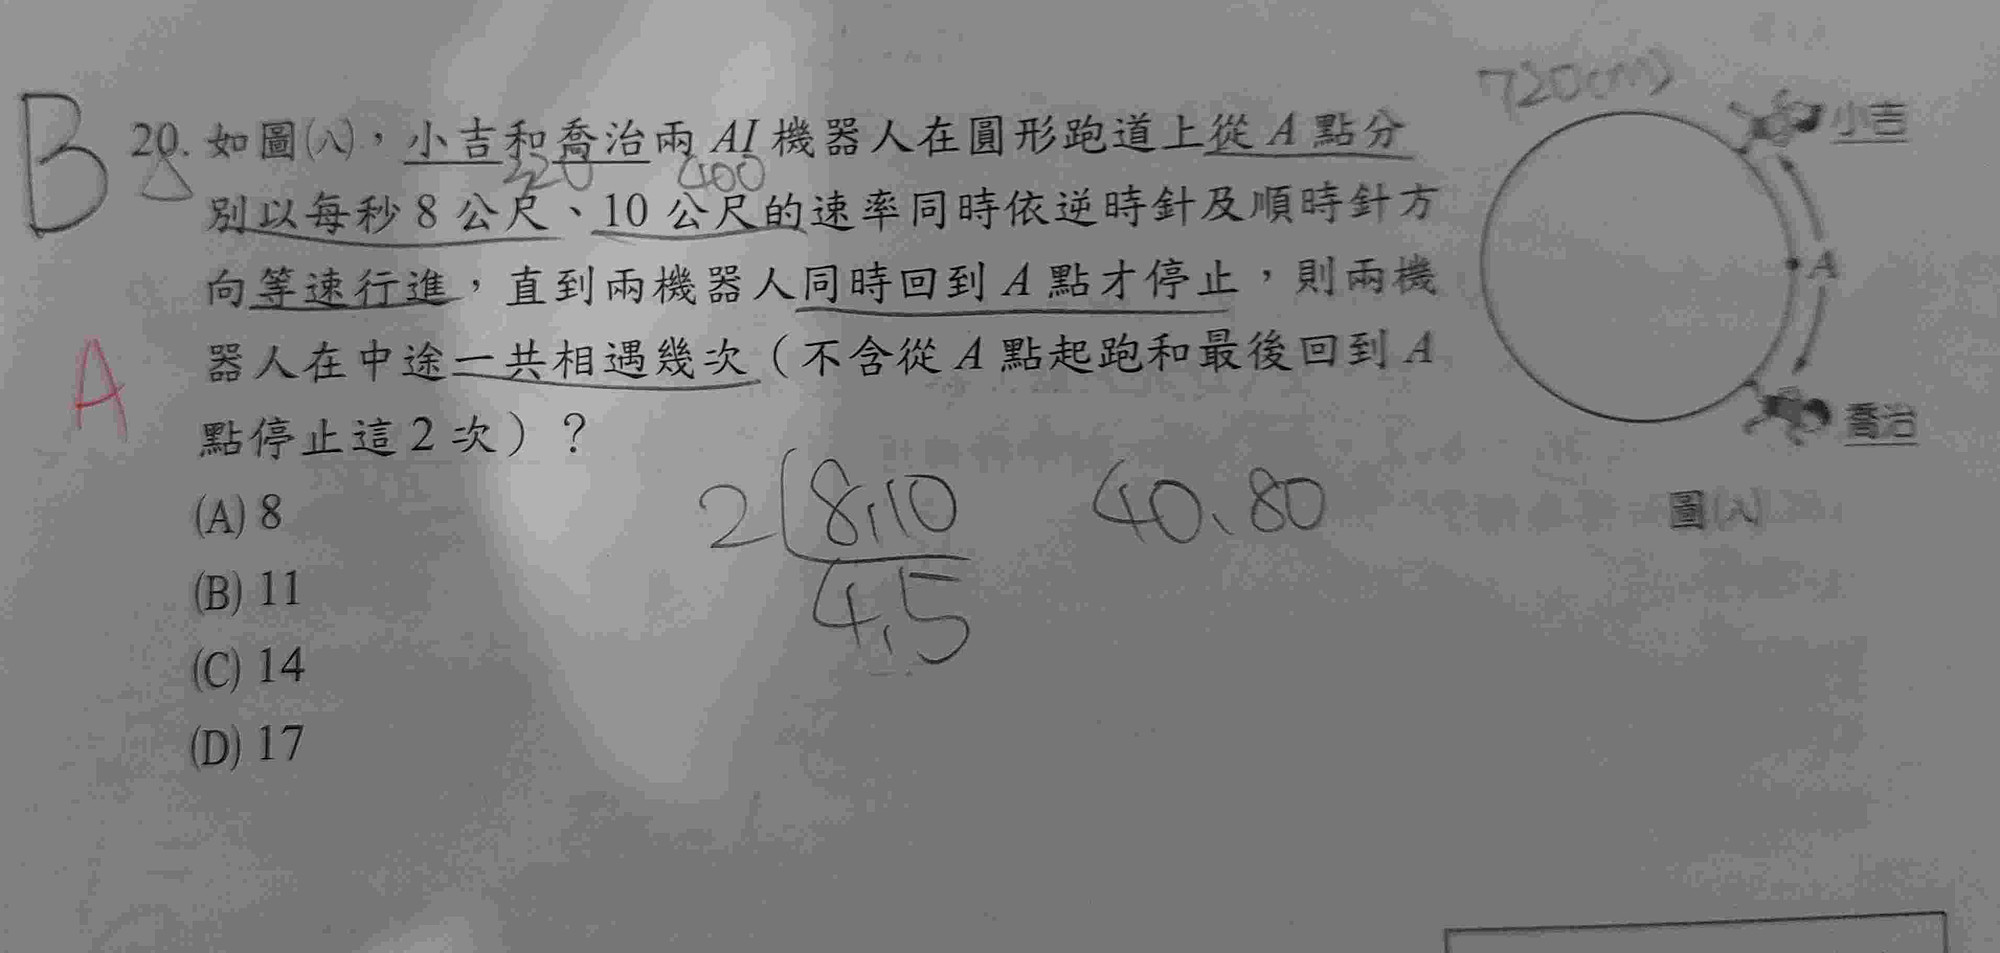 B
20. 如圖(八)，小吉和喬治兩 AI 機器人在圓形跑道上從 A 點分
320 400
別以每秒 8 公尺、10 公尺的速率同時依逆時針及順時針方
向等速行進，直到兩機器人同時回到 A 點才停止，則兩機
器人在中途一共相遇幾次（不含從 A 點起跑和最後回到 A
點停止這 2 次）？
A
(A) 8
(B) 11
(C) 14
(D) 17
2 8,10
4,5
40、80
720(m)
小吉
A
喬治
圖(八)